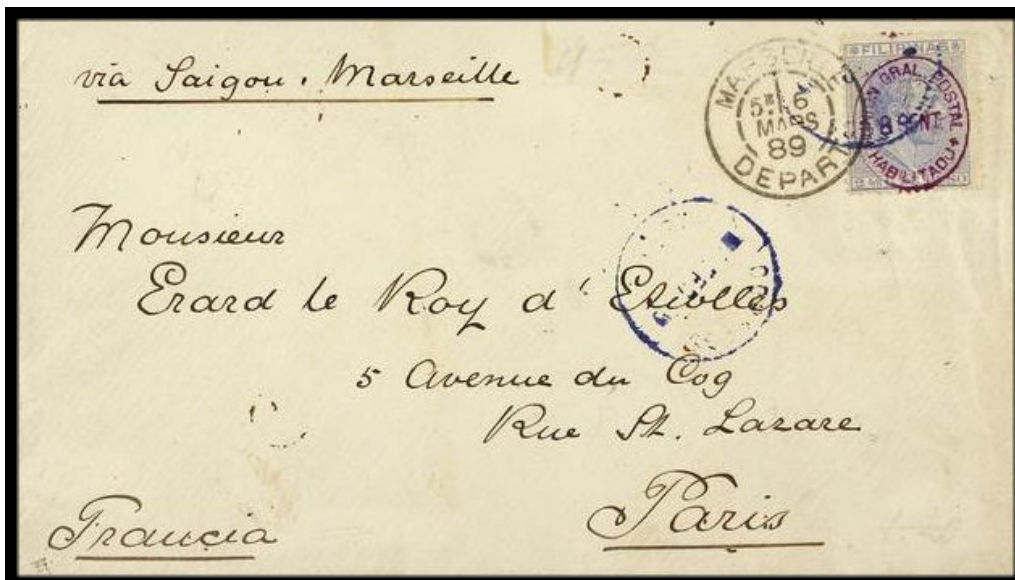 via Saigon. Marseille
FILIPINAS
MARSEILLE
5E 6
MARS
89
DEPART
GRAL. POSTAL
8 CENT
HABILITADO
Monsieur
Erard le Roy d'Etiolles
5 Avenue du Coq
Rue St. Lazare
Paris
Francia